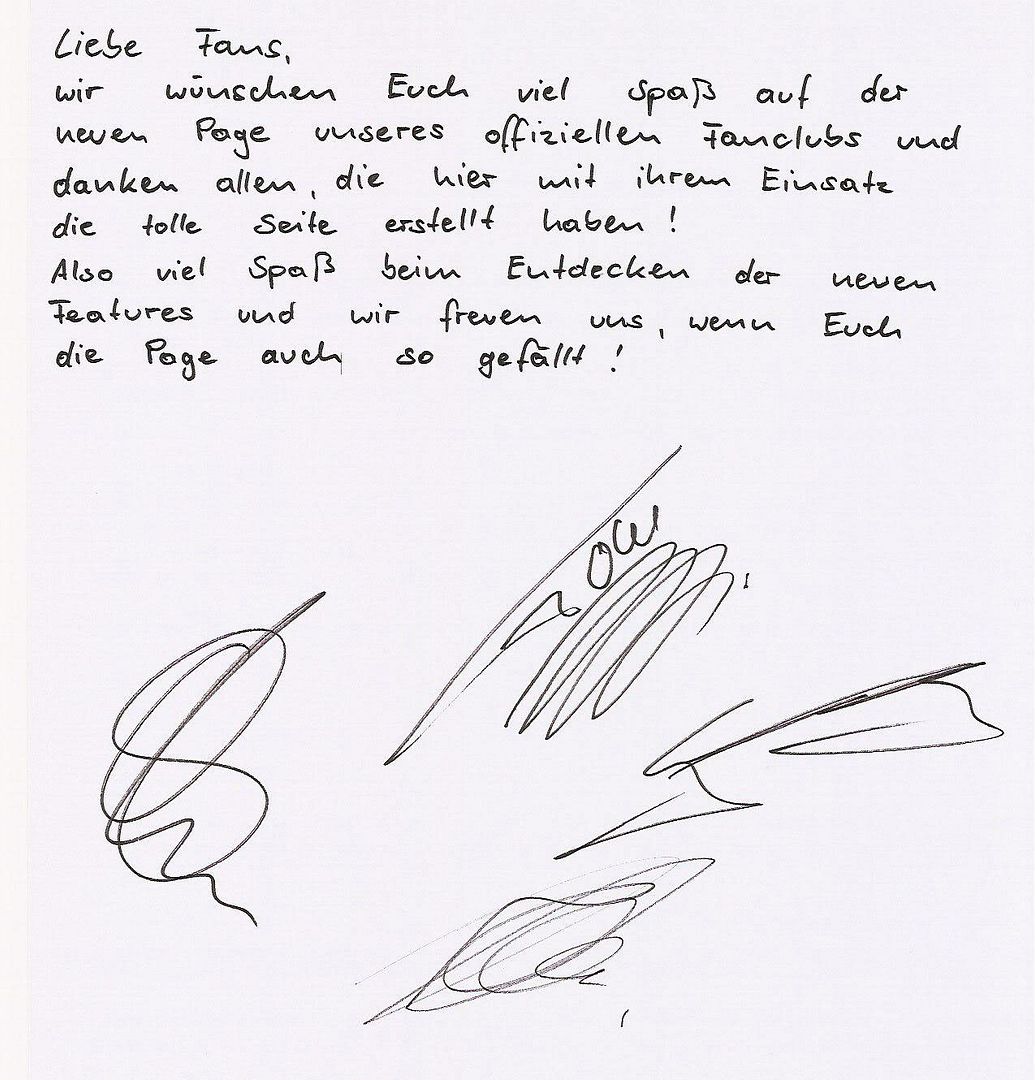 Liebe Fans,
wir wünschen Euch viel Spaß auf der
neuen Page unseres offiziellen Fanclubs und
danken allen, die hier mit ihrem Einsatz
die tolle Seite erstellt haben!
Also viel Spaß beim Entdecken der neuen
Features und wir freuen uns, wenn Euch
die Page auch so gefällt!